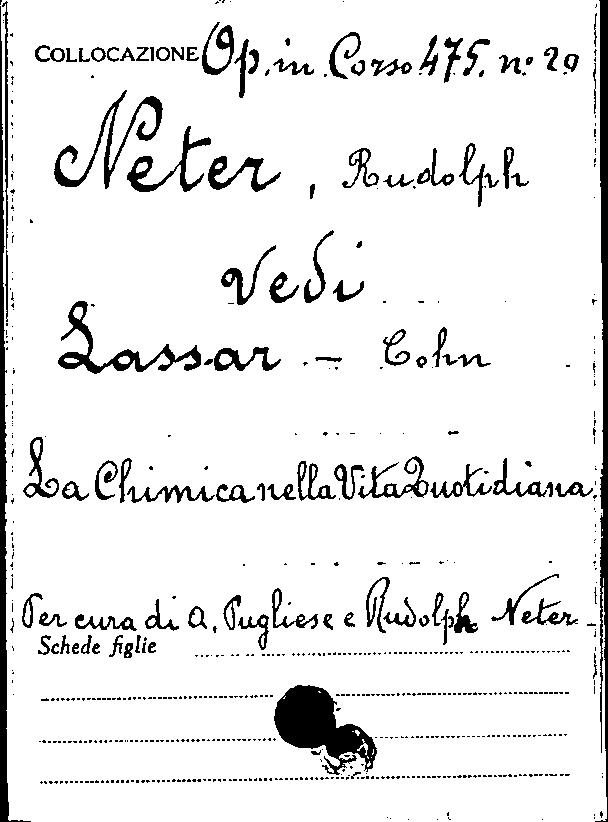 COLLOCAZIONE Op. in Corso 475. n° 20
Neter, Rudolph
Vedi
Lassar - Cohn
La Chimica nella Vita Quotidiana
Per cura di A. Pugliese e Rudolph Neter
Schede figlie